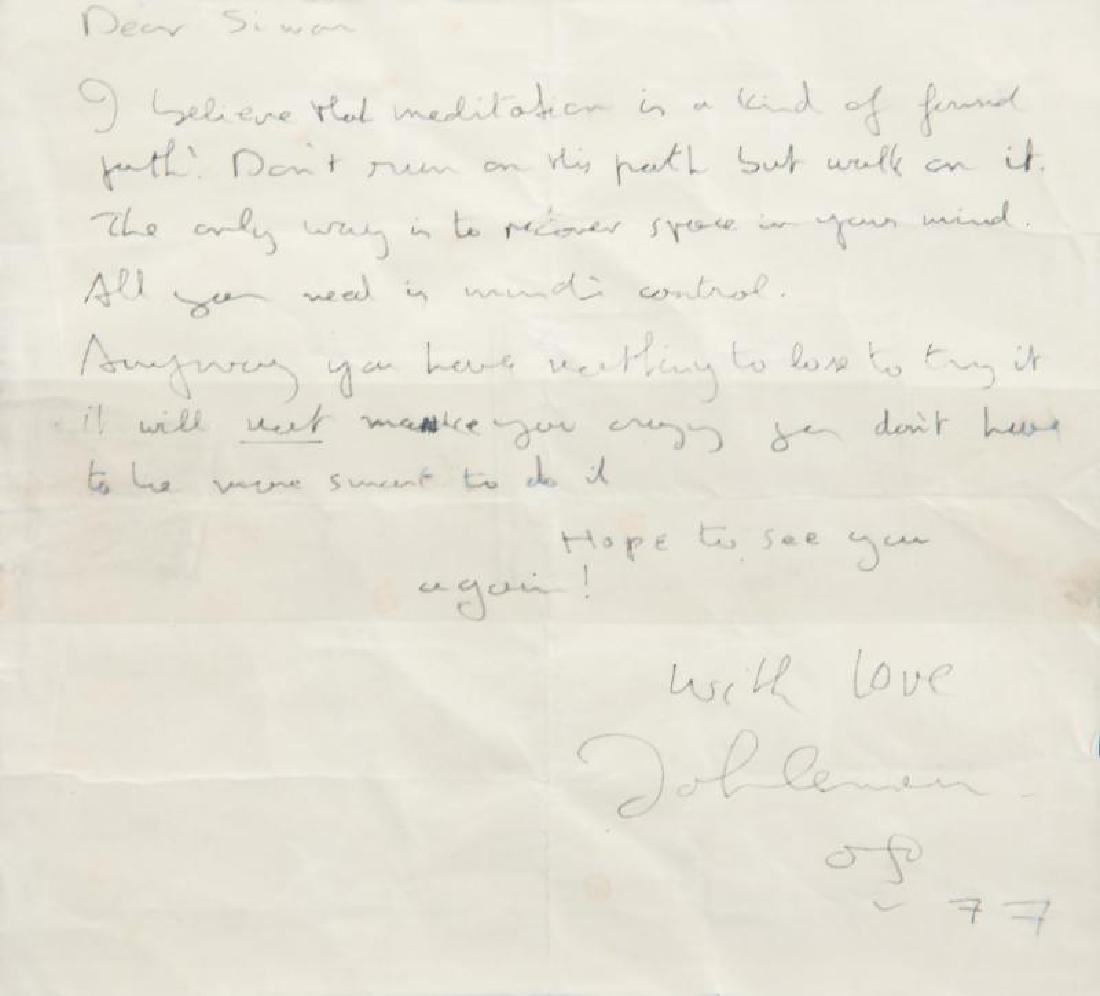 Dear Simon
I believe that meditation is a kind of found
path. Don't run on this path but walk on it.
The only way is to recover space in your mind.
All you need is mind control.
Anyway you have nothing to lose to try it
it will not make you crazy you don't have
to be more smart to do it
Hope to see you
again!
With love
77